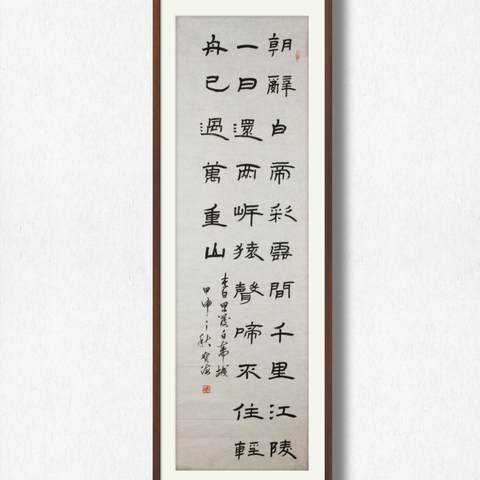 朝辭白帝彩雲間千里江陵
一日還兩岸猿聲啼不住輕
舟已過萬重山
李白早發白帝城
甲申之秋